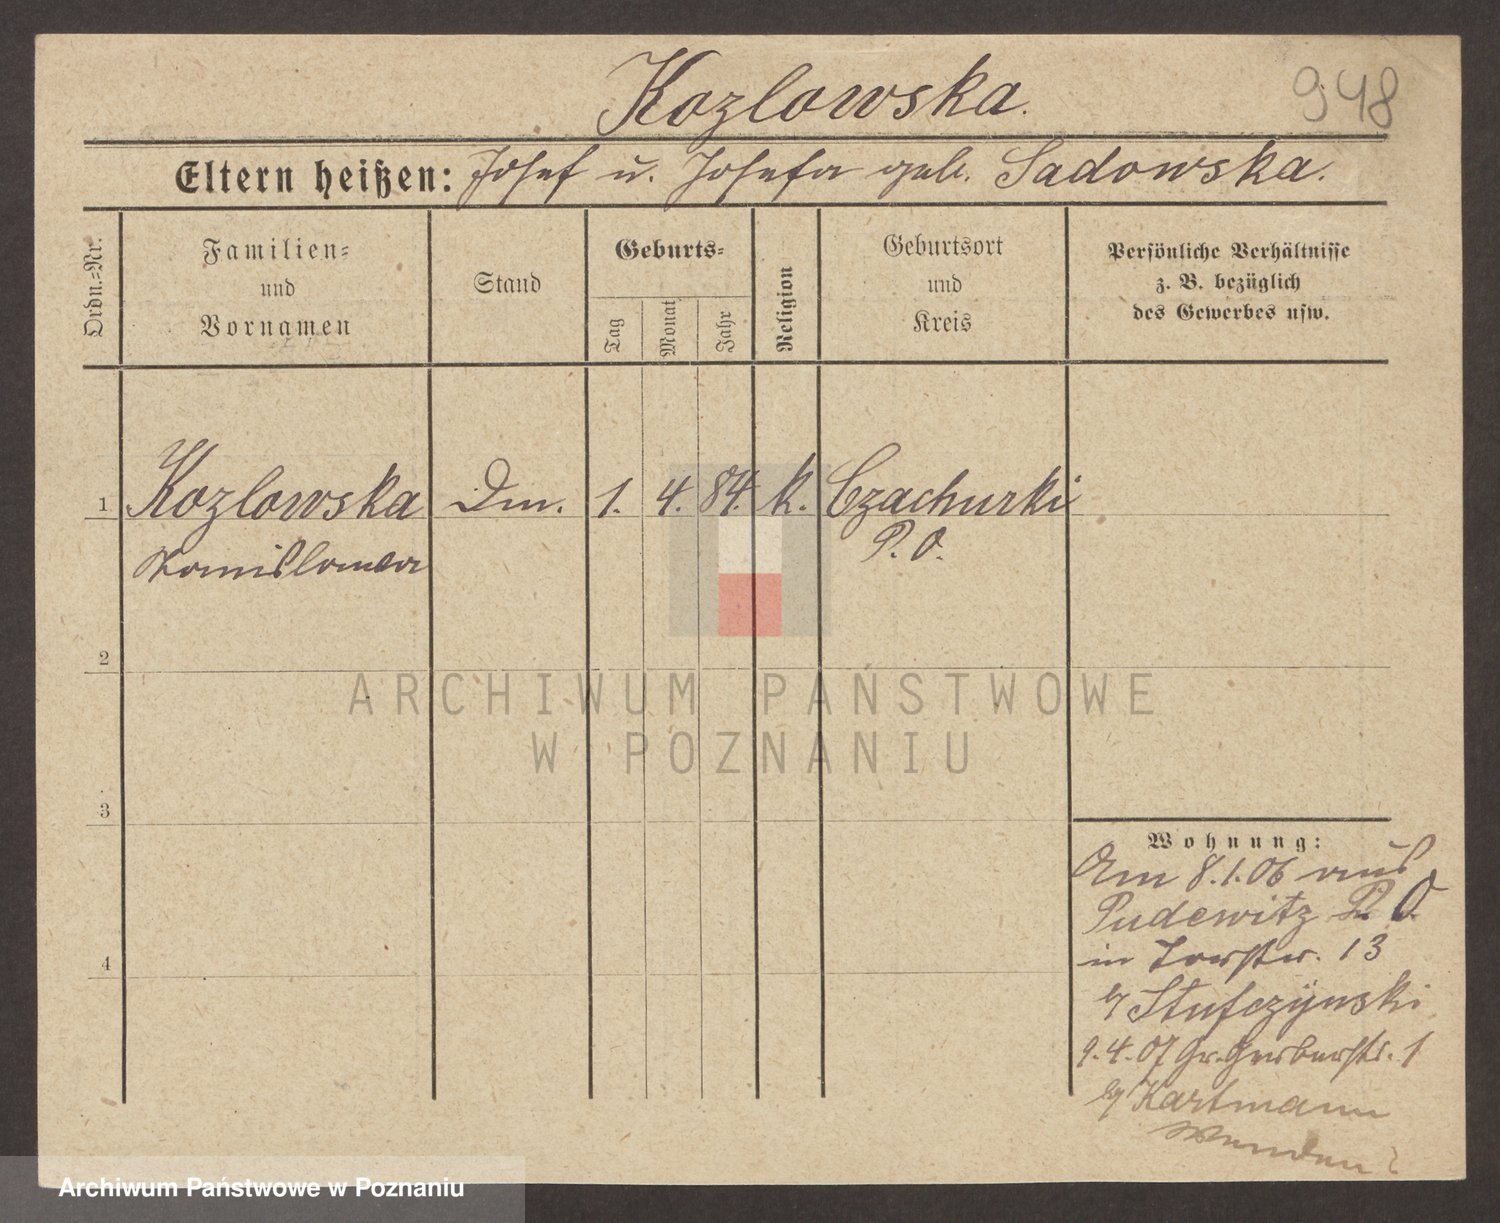 Kozlowska.
948
Eltern heißen: Josef u. Josefa geb. Sadowska.
Ordn.-Nr.
Familien-
und
Vornamen
Stand
Geburts-
Tag
Monat
Jahr
Religion
Geburtsort
und
Kreis
Persönliche Verhältnisse
z. B. bezüglich
des Gewerbes usw.
1 Kozlowska Dm. 1. 4. 84. k. Czachurki
P. O.
2
3
4
Wohnung:
Am 8.1.06 aus
Pudewitz P. O.
in Torstr. 13
b/ Stufczynski
9.4.07 Gr. Gerberstr. 1
b/ Hartmann
Wenden
ARCHIWUM PAŃSTWOWE
W POZNANIU
Archiwum Państwowe w Poznaniu